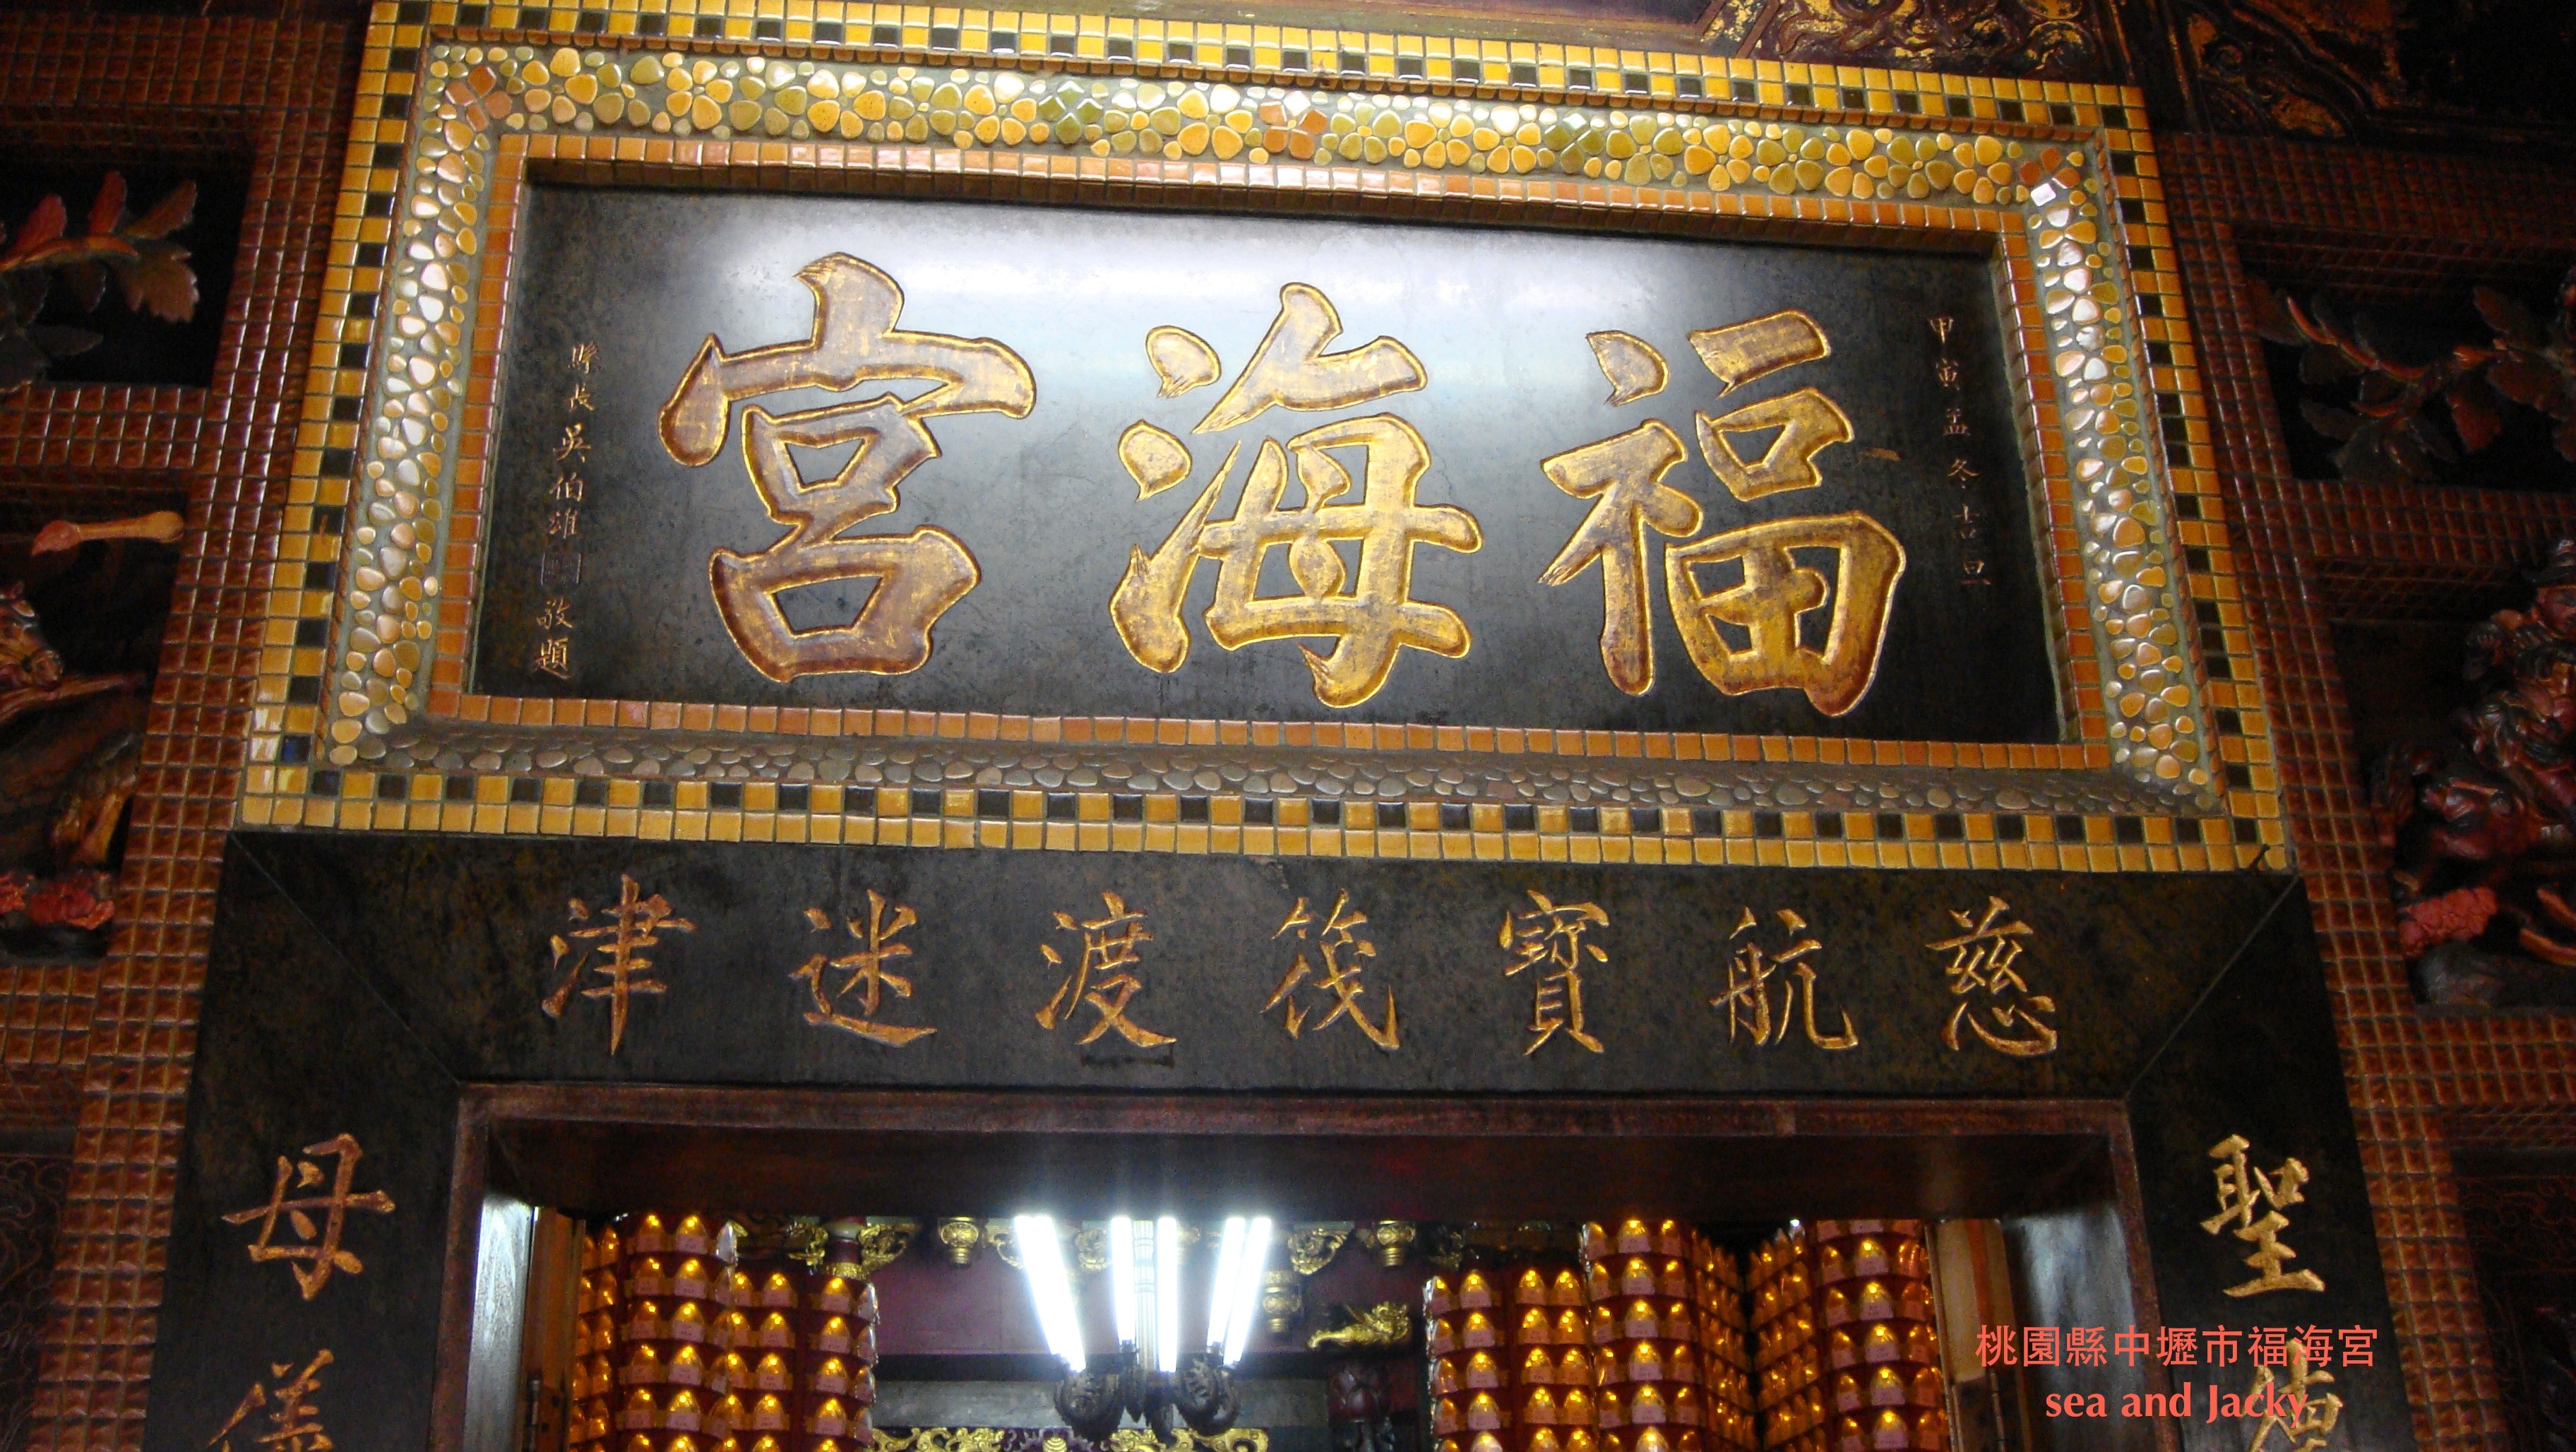 甲寅孟冬吉旦
福海宮
縣長吳伯雄敬題
慈航寶筏渡迷津
聖
母儀
桃園縣中壢市福海宮
sea and Jacky